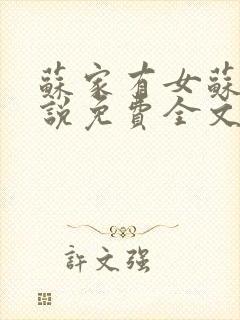 蘇家有女蘇
說免費全文
許文强